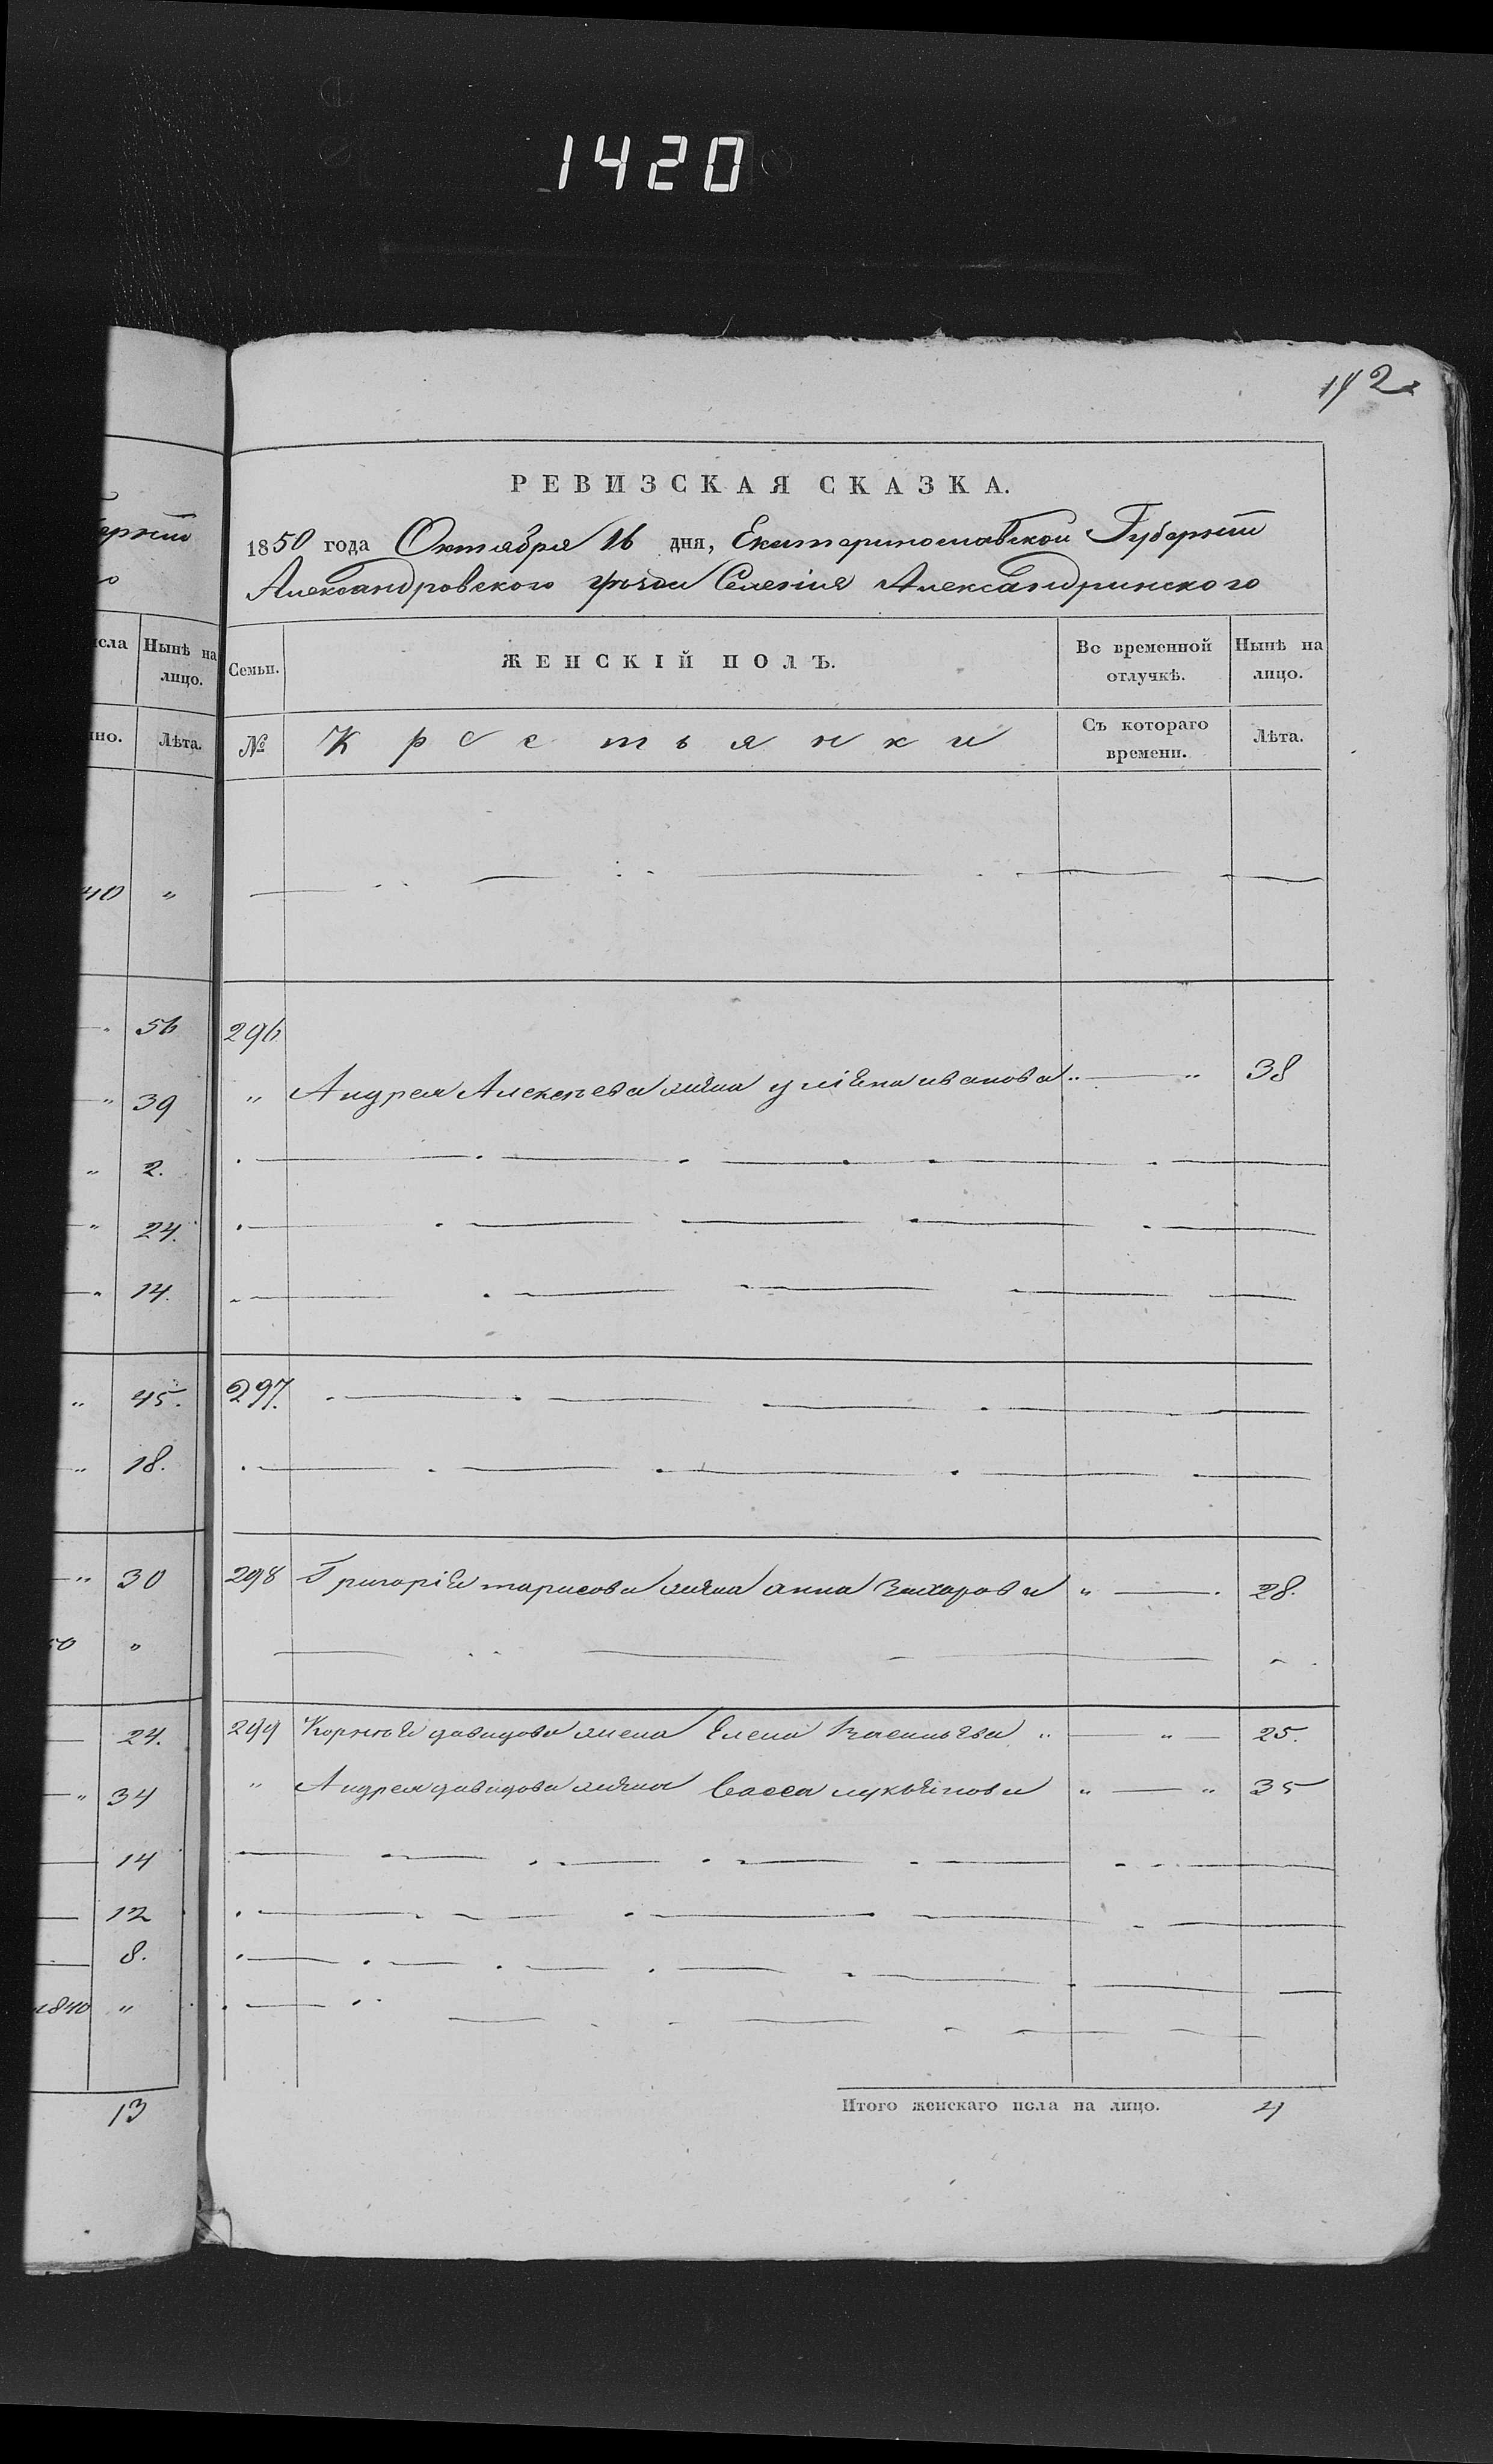 1420
142
РЕВИЗСКАЯ СКАЗКА.
1850 года Октября 16 дня, Екатеринославской Губернiи
Александровского уѣзда Селенiя Александринского
исла Нынѣ на лицо.
Семьи. ЖЕНСКІЙ ПОЛЪ. Во временной отлучкѣ. Нынѣ на лицо.
Лѣта.
№ Крестьянки Съ котораго времени. Лѣта.
40 "
56 296
39 " Андрея Алексѣева жена улiяна иванова " — " 38
2.
24.
14.
45. 297.
18.
30 298 Григорiя тарасова жена анна Захарова " — 28.
50 "
24. 299 Корнѣя давидова жена Елена Васильева " — " — 25.
34 " Андрея давидова жена Васса лукьянова " — " 35
14
12
8.
1840 "
13
Итого женскаго пола на лицо. 4